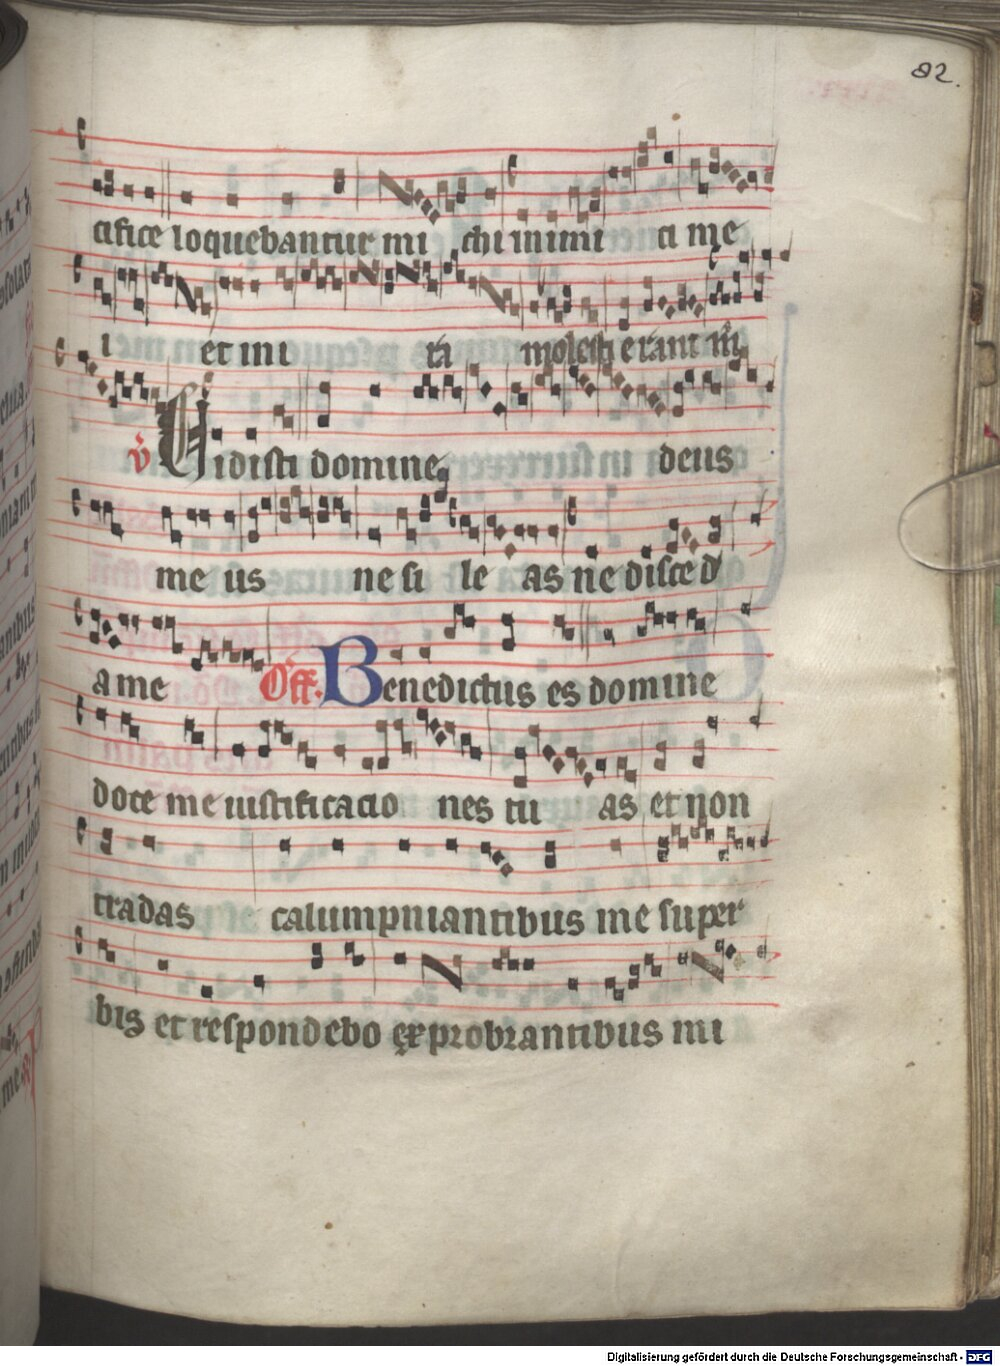 82.
cifice loquebantur mi chi inimi ci me
i et ini ti molesti erant m̄
v̄ Vidisti domine deus
me us ne si le as ne disced
a me Off. Benedictus es domine
doce me iustificacio nes tu as et non
tradas calumpniantibus me super
bis et respondebo exprobrantibus mi
Digitalisierung gefördert durch die Deutsche Forschungsgemeinschaft - DFG